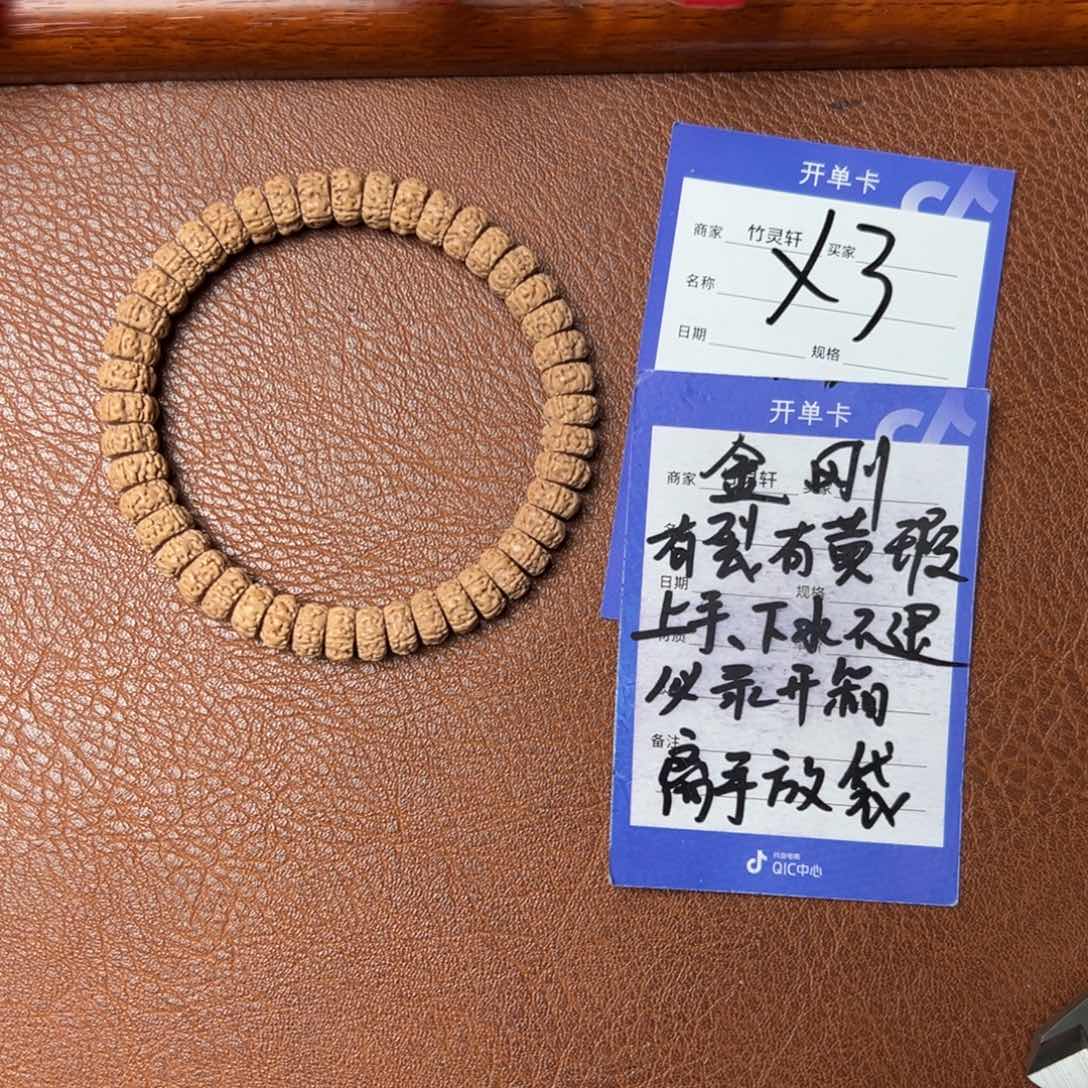 开单卡
商家 竹灵轩 买家
X3
名称
日期 规格
开单卡
商家 轩
金刚
有裂有黄瑕
日期 规格
上手、下水不退
必录开箱
备注
离手放袋
抖音电商
QIC中心